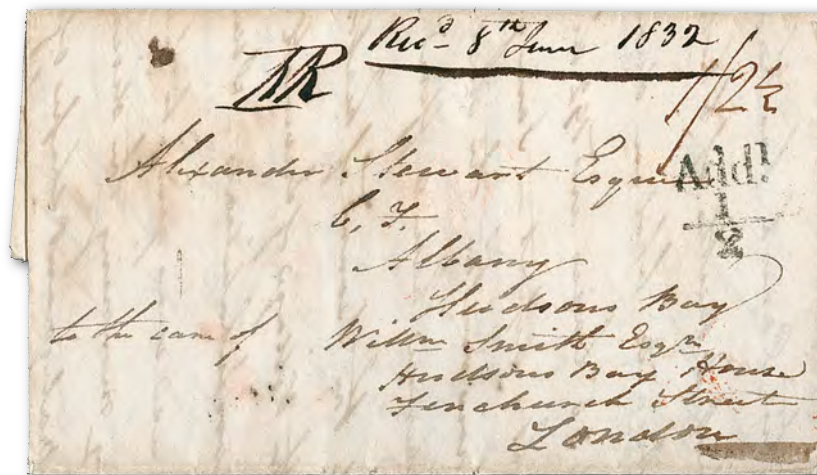 Recd 8th June 1832
1/2½
Alexander Stewart Esquire
Addl
1
2
C. F.
Albany
Hudsons Bay
to the care of Willm Smith Esqre
Hudsons Bay House
Fenchurch Street
London